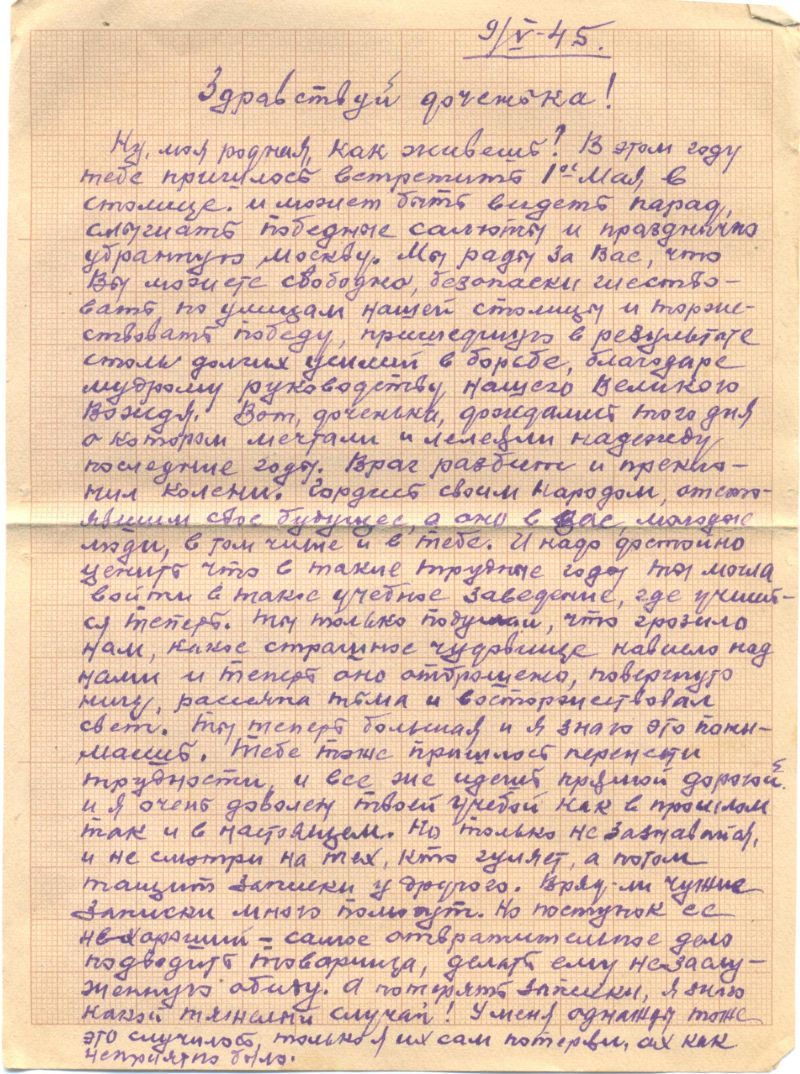 9/V-45.
Здравствуй доченька!
Ну, моя родная, как живешь? В этом году
тебе пришлось встретить 1ое Мая, в
столице. и может быть видеть парад,
слышать победные салюты и празднично
убранную Москву. Мы рады за Вас, что
Вы можете свободно, безопаски шество-
вать по улицам нашей столицы и торже-
ствовать победу, пришедшую в результате
столь долгих усилий в борьбе, благодаре
мудрому руководству нашего Великого
Вождя. Вот, доченька, дождались того дня
о котором мечтали и лелеяли надежду
последние годы. Враг разбит и прекло-
нил колени. Гордись своим народом, отсто-
явшим свое будущее, а оно в Вас, молодые
люди, в том числе и в тебе. И надо достойно
ценить что в такие трудные годы ты могла
войти в такое учебное заведение, где учишь-
ся теперь. Ты только подумай, что грозило
нам, какое страшное чудовище нависло над
нами и теперь оно отброшено, повергнуто
ниц, рассеяна тьма и восторжествовал
свет. Ты теперь большая и я знаю это пони-
маешь. Тебе тоже пришлось перенести
трудности, и все же идешь прямой дорогой.
и я очень доволен твоей учебой как в прошлом
так и в настоящем. Но только не зазнавайся,
и не смотри на тех, кто гуляет, а потом
тащить записки у другого. Вряд-ли чужие
записки много помогут. Но поступок ее
не хороший – самое отвратительное дело
подводить товарища, делать ему незаслу-
женную обиду. А потерять записки, я знаю
какой тяжелый случай! У меня однажды тоже
это случилось, только я их сам потерял, ах как
неприятно было.